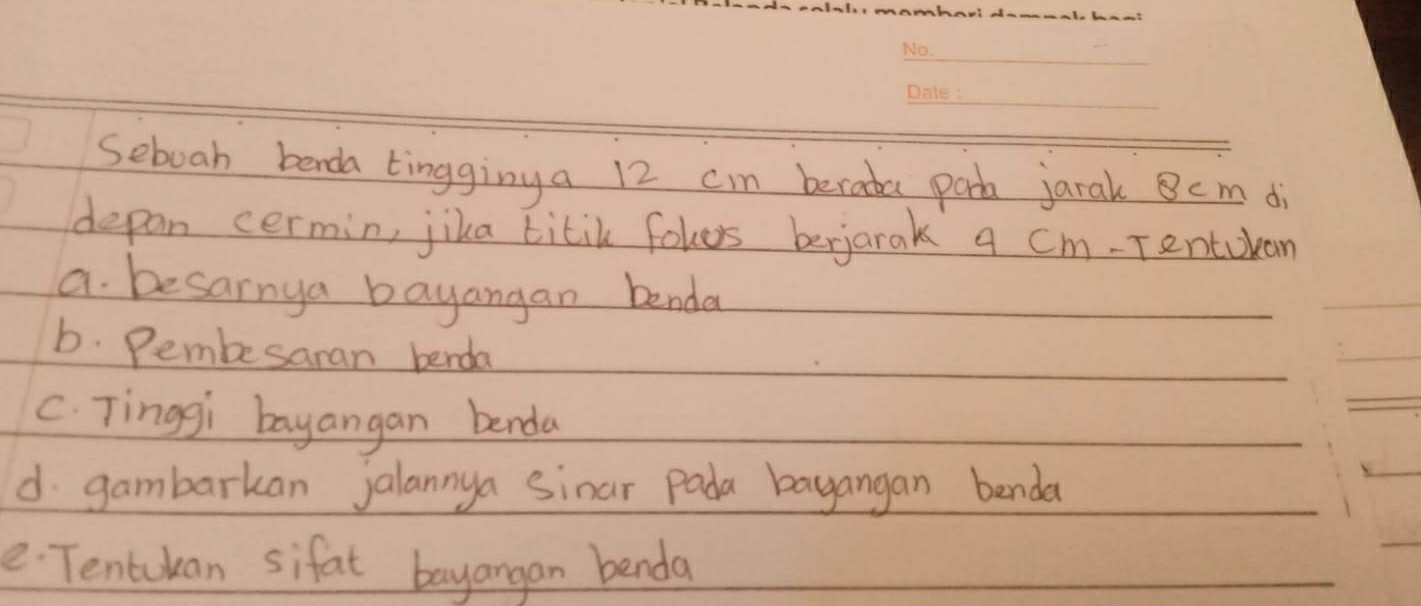 No.
Date :
Sebuah benda tingginya 12 cm berada pada jarak 8 cm di
depan cermin, jika titik fokus berjarak 4 cm - Tentukan
a. besarnya bayangan benda
b. Pembesaran benda
c. Tinggi bayangan benda
d. gambarkan jalannya Sinar Pada bayangan benda
e. Tentukan sifat bayangan benda